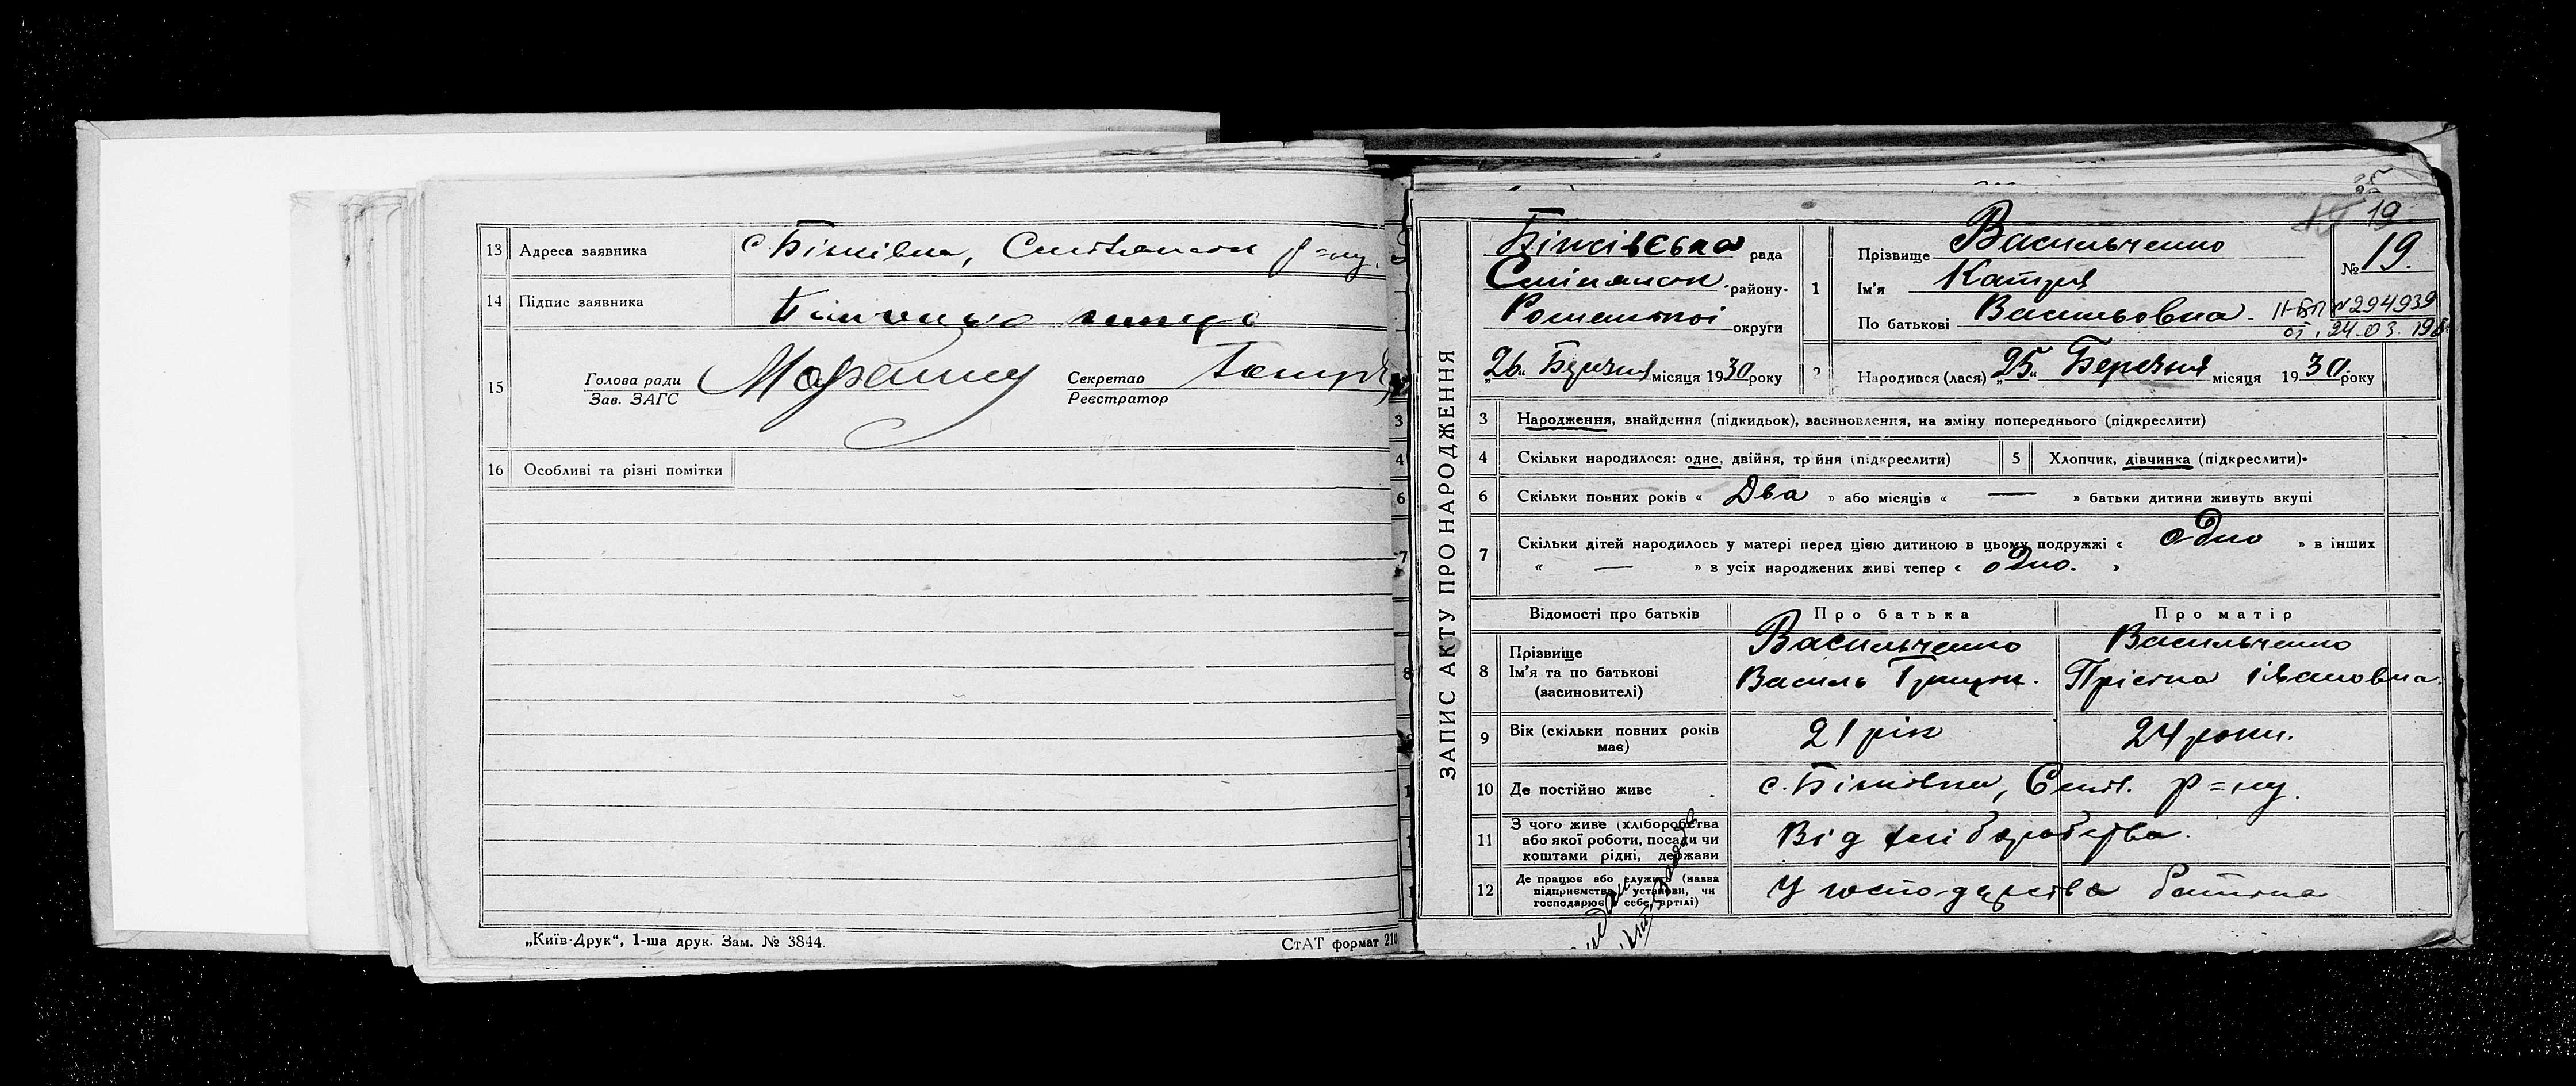 13 Адреса заявника с. Біжівка,
14 Підпис заявника
15 Голова ради
Зав. ЗАГС
Секретар
Реєстратор
16 Особливі та різні помітки
„Київ-Друк“, 1-ша друк. Зам. № 3844.
СтАТ формат 210
ЗАПИС АКТУ ПРО НАРОДЖЕННЯ
19
Біжівська рада
району
Роменської округи
„26“ Березня місяця 1930 року
1 Прізвище Васильченко
Ім'я Катря
По батькові Васильовна
№ 19.
II-БП №294939
от 24.03.19
2 Народився (лася) „25“ Березня місяця 1930 року
3 Народження, знайдення (підкидьок), засиновлення, на зміну попереднього (підкреслити)
4 Скільки народилося: одне, двійня, трійня (підкреслити)
5 Хлопчик, дівчинка (підкреслити)
6 Скільки повних років « Два » або місяців « — » батьки дитини живуть вкупі
7 Скільки дітей народилось у матері перед цією дитиною в цьому подружжі « одно » в інших
« — » з усіх народжених живі тепер « одно. »
Відомості про батьків Про батька Про матір
8 Прізвище Васильченко Васильченко
Ім'я та по батькові Василь Грицьк. Івановна.
(засиновителі)
9 Вік (скільки повних років має) 21 рік 24 роки.
10 Де постійно живе с. Біжівка, р=ну.
11 З чого живе (хліборобства або якої роботи, посади чи коштами рідні, держави Від хліборобства.
12 Де працює або служить (назва підприємства, установи, чи господарює в себе, артілі) У господарстві батька